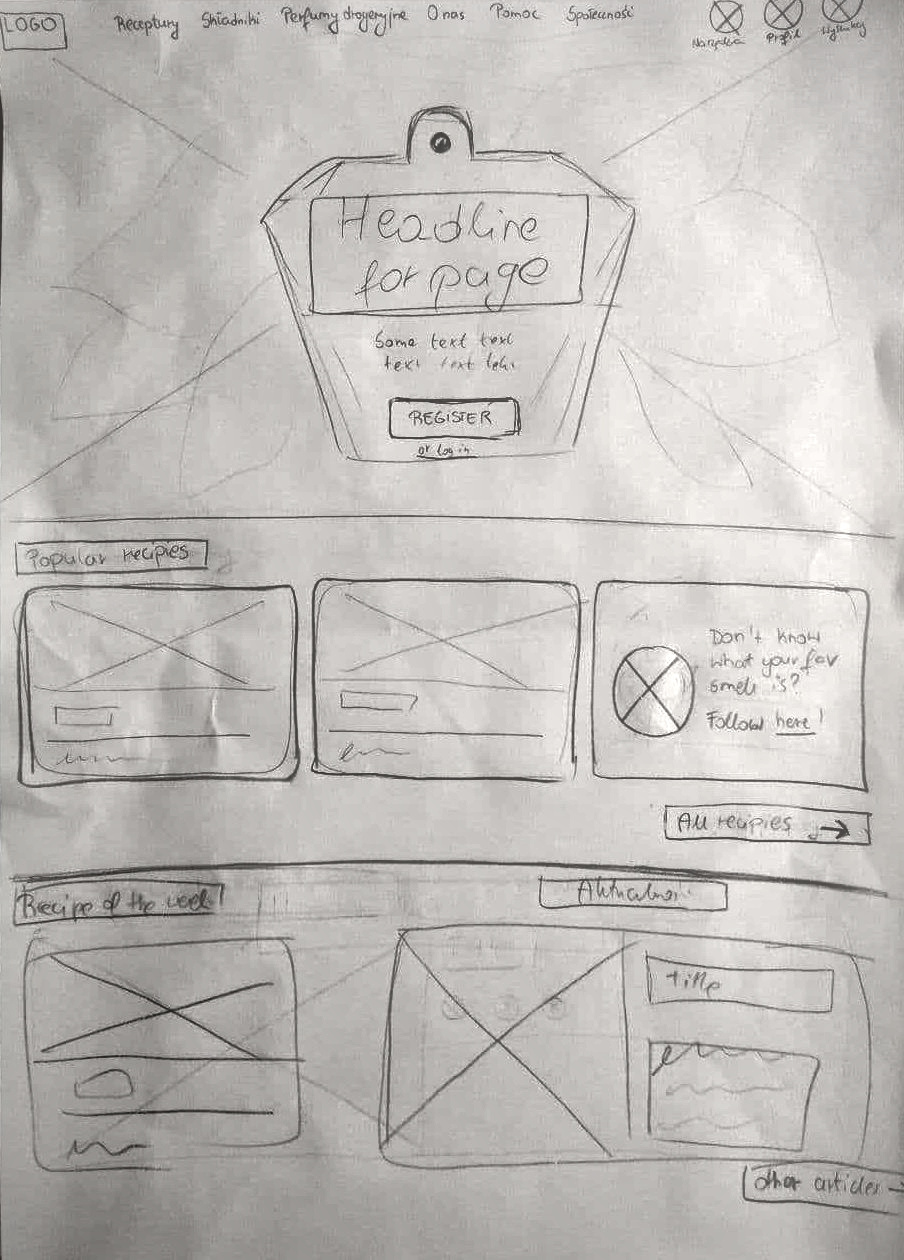 LOGO
Receptury Składniki Perfumy drogeryjne O nas Pomoc Społeczność
Narzędzia Profil
Headline
for page
Some text text
text text text
REGISTER
or log in
Popular recipies
Don't know
what your fav
smell is?
Follow here!
All recipies →
Recipe of the week
title
other articles →